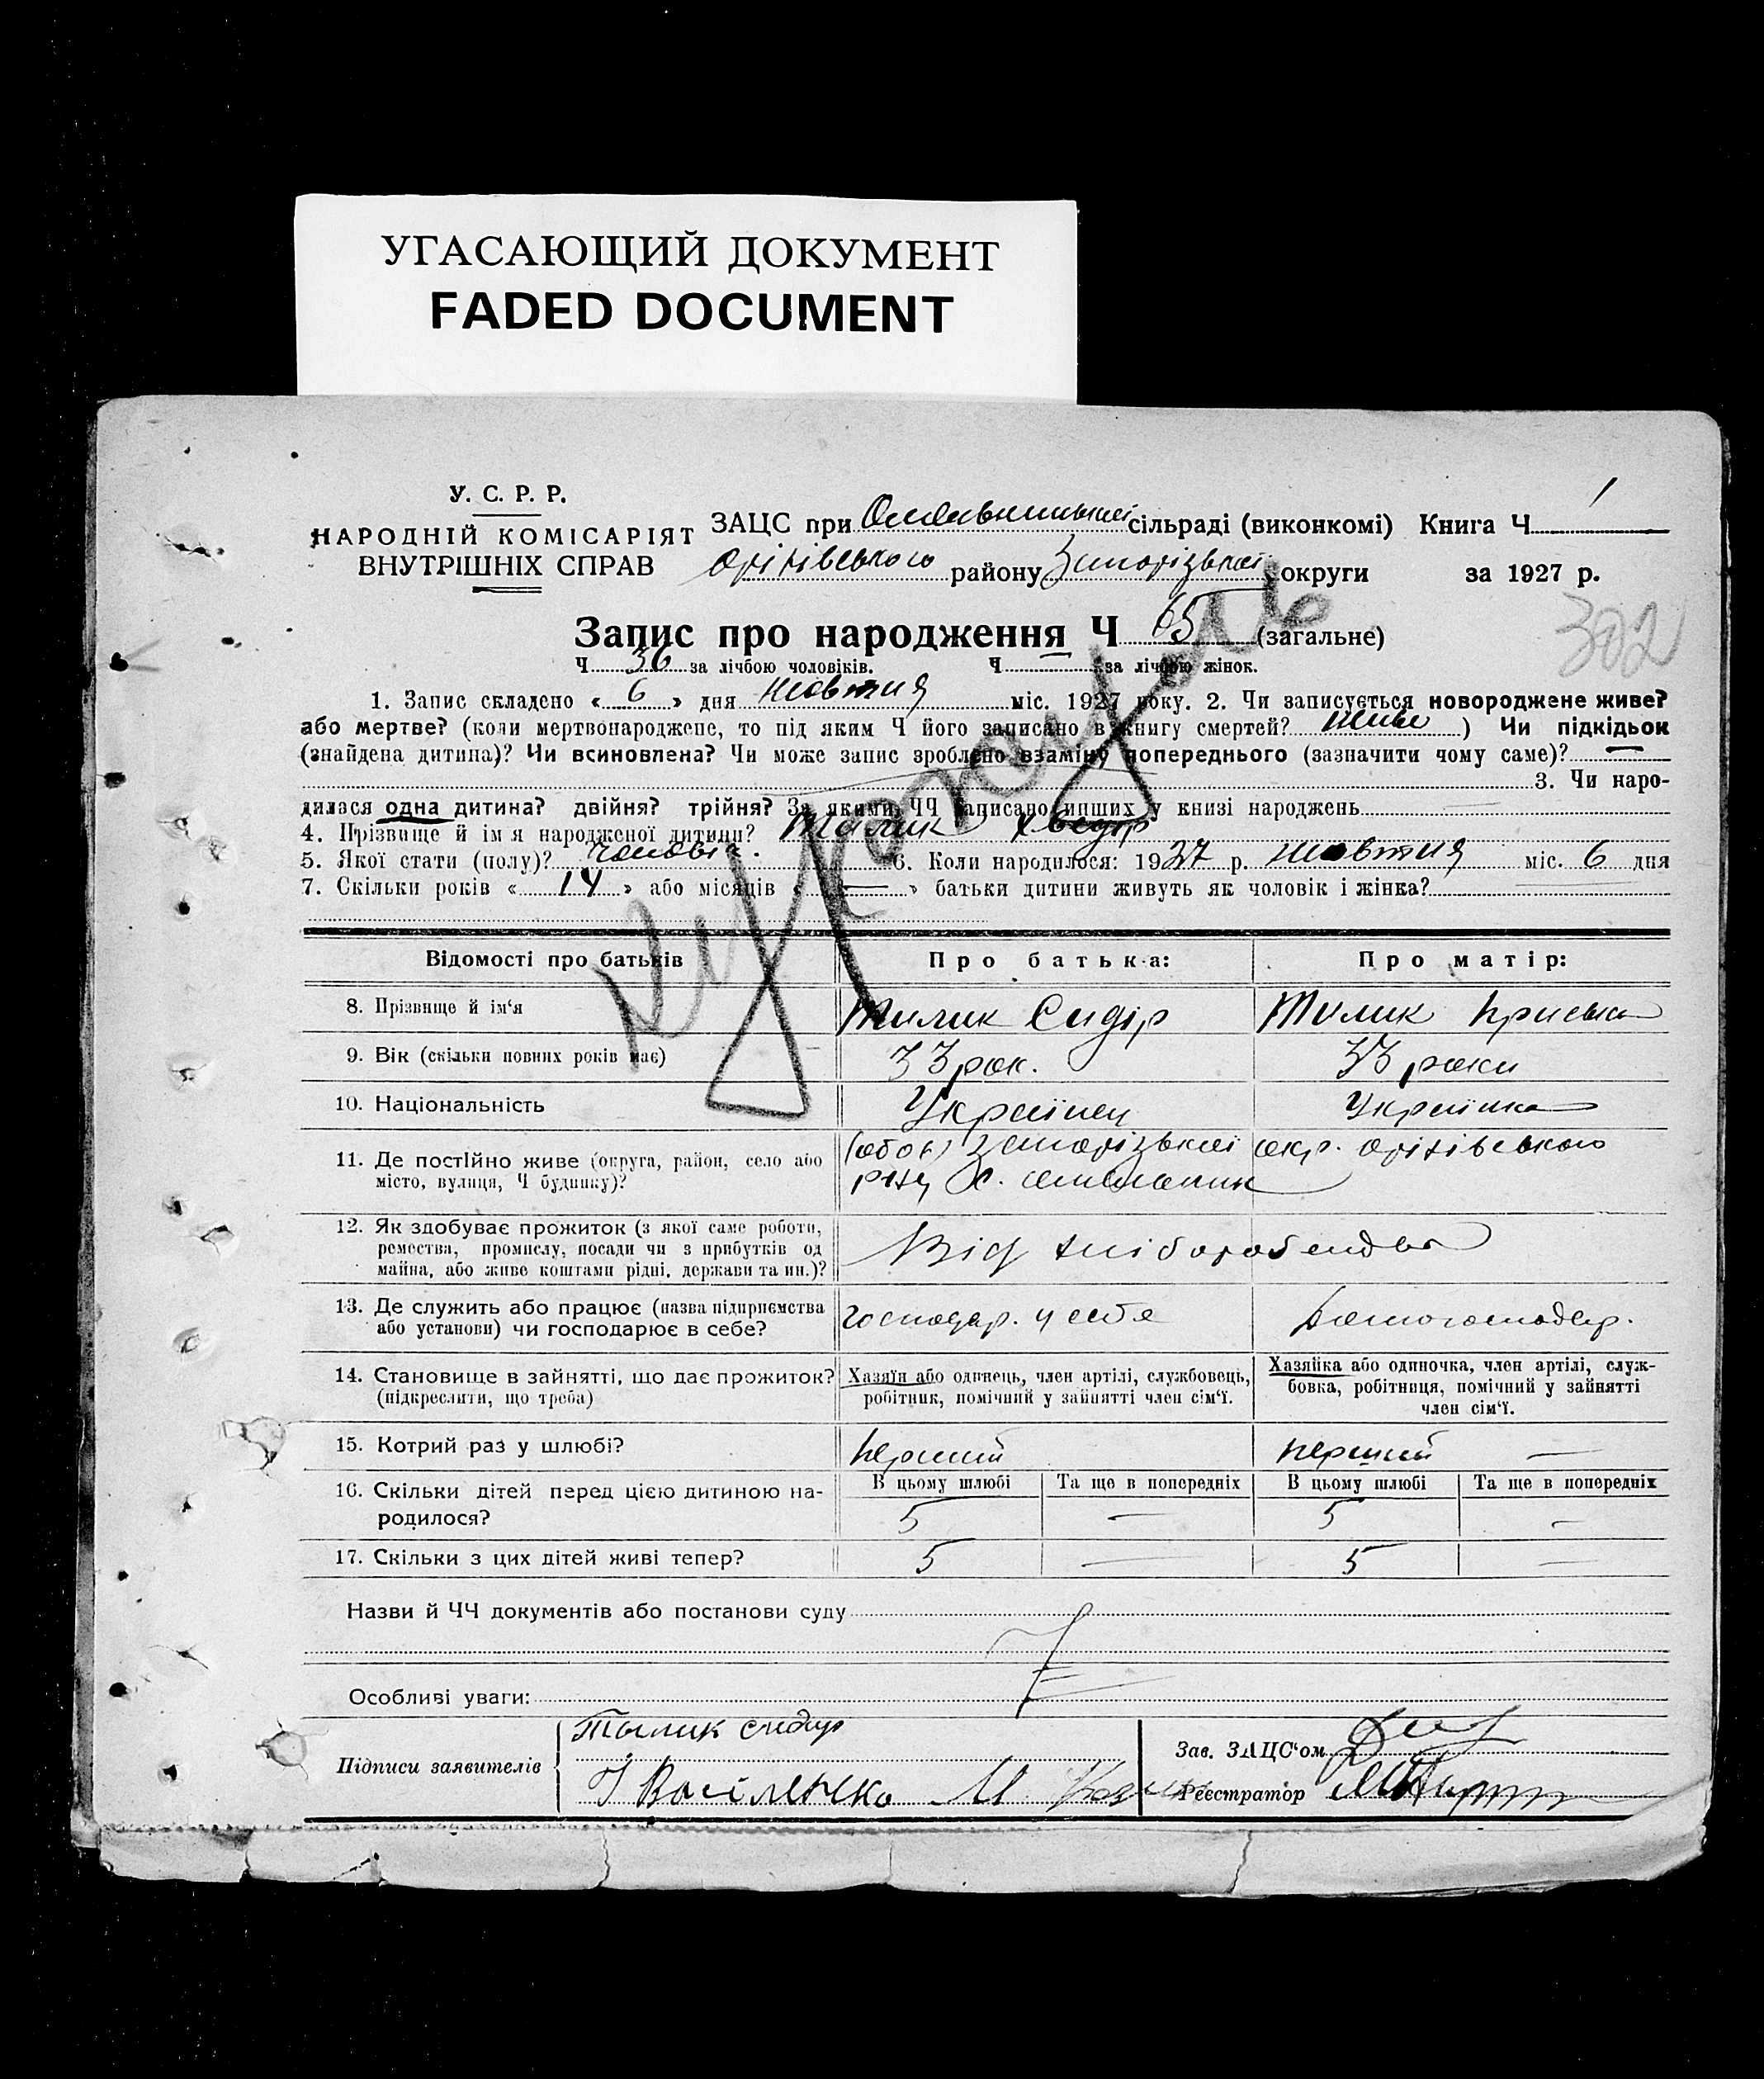 УГАСАЮЩИЙ ДОКУМЕНТ
FADED DOCUMENT
У. С. Р. Р.
НАРОДНІЙ КОМІСАРІЯТ
ВНУТРІШНІХ СПРАВ
ЗАЦС при сільраді (виконкомі) Книга Ч. 1
Оріхівського району Запорізької округи за 1927 р.
302
Запис про народження Ч 65 (загальне)
Ч 36 за лічбою чоловіків. Ч за лічбою жінок.
1. Запис складено « 6 » дня жовтня міс. 1927 року. 2. Чи записується новороджене живе?
або мертве? (коли мертвонароджене, то під яким Ч його записано в книгу смертей? живе ) Чи підкідьок
(знайдена дитина)? Чи всиновлена? Чи може запис зроблено взаміну попереднього (зазначити чому саме)? —
3. Чи наро-
дилася одна дитина? двійня? трійня? За якими ЧЧ записано инших у книзі народжень —
4. Прізвище й ім я народженої дитини? Тилик Хведір
5. Якої стати (полу)? Чоловіч. 6. Коли народилося: 1927 р. жовтня міс. 6 дня
7. Скільки років « 14 » або місяців « — » батьки дитини живуть як чоловік і жінка? —
Відомості про батьків Про батька: Про матір:
8. Прізвище й ім‘я Тилик Сидір Тилик Приська
9. Вік (скільки повних років має) 33 рок. 33 роки
10. Національність Українец Українка
11. Де постійно живе (округа, район, село або (обоє) Запорізької окр. Оріхівського
місто, вулиця, Ч будинку)? р-ну С.
12. Як здобуває прожиток (з якої саме роботи,
ремества, промислу, посади чи з прибутків од Від хліборобства
майна, або живе коштами рідні, держави та ин.)?
13. Де служить або працює (назва підприємства Господар. у себе Домогосподар.
або установи) чи господарює в себе?
14. Становище в зайнятті, що дає прожиток? Хазяїн або одинець, член артілі, службовець, Хазяйка або одиночка, член артілі, служ-
(підкреслити, що треба) робітник, помічний у зайнятті член сім‘ї. бовка, робітниця, помічний у зайнятті
член сім‘ї.
15. Котрий раз у шлюбі? перший перший —
В цьому шлюбі Та ще в попередніх В цьому шлюбі Та ще в попередніх
16. Скільки дітей перед цією дитиною на-
родилося? 5 — 5 —
17. Скільки з цих дітей живі тепер? 5 — 5 —
Назви й ЧЧ документів або постанови суду
Особливі уваги:
Підписи заявителів Тылик сидир
Зав. ЗАЦС‘ом
Васіленко
Реєстратор